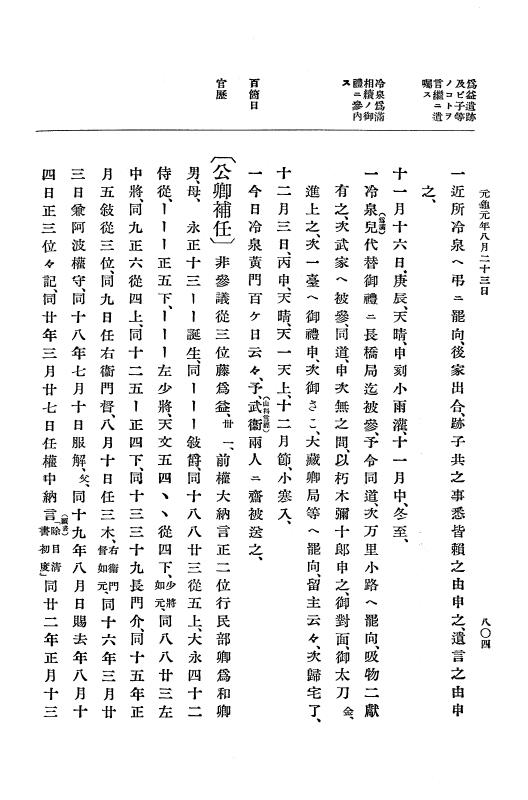 元龜元年八月二十三日
八〇四
爲益遺跡
及ビ子等
ノコトヲ
言繼ニ遺
囑ス
一近所冷泉ヘ弔ニ罷向、後家出合、跡子共之事悉皆賴之由申之、遺言之由申
之、
十一月十六日、庚辰、天晴、申刻小雨灑、十一月中、冬至、
冷泉爲滿
相續ノ御
禮ニ參內
ス
一冷泉兒(爲滿)代替御禮ニ長橋局迄被參、予令同道、次万里小路ヘ罷向、吸物二獻
有之、次武家ヘ被參、同道申、次無之間、以朽木彌十郎申之、御對面、御太刀金、
進上之、次一臺ヘ御禮申、次御さこ、大藏卿局等ヘ罷向、留主云々、次歸宅了、
十二月三日、丙申、天晴、天一天上、十二月節、小寒入、
百箇日
一今日冷泉黃門百ケ日云々、予、武衞(山科言經)兩人ニ齋被送之、
官歷
〔公卿補任〕 非參議從三位藤爲益、卅一、前權大納言正二位行民部卿爲和卿
男、母、 永正十三ーー誕生、同ーーー敍爵、同十八八廿三從五上、大永四十二
侍從、ーーー正五下、ーーー左少將、天文五四ヽヽ從四下、少將如元、同八八廿三左
中將、同九正六從四上、同十二五ー正四下、同十三三十九長門介、同十五年正
月五敍從三位、同九日任右衞門督、八月十日任三木、右衞門督如元、同十六年三月廿
三日兼阿波權守、同十八年七月十日服解、父、同十九年八月日賜去年八月十
四日正三位々記、同廿年三月廿七日任權中納言、(頭書)「除目淸書初度」同廿二年正月十三